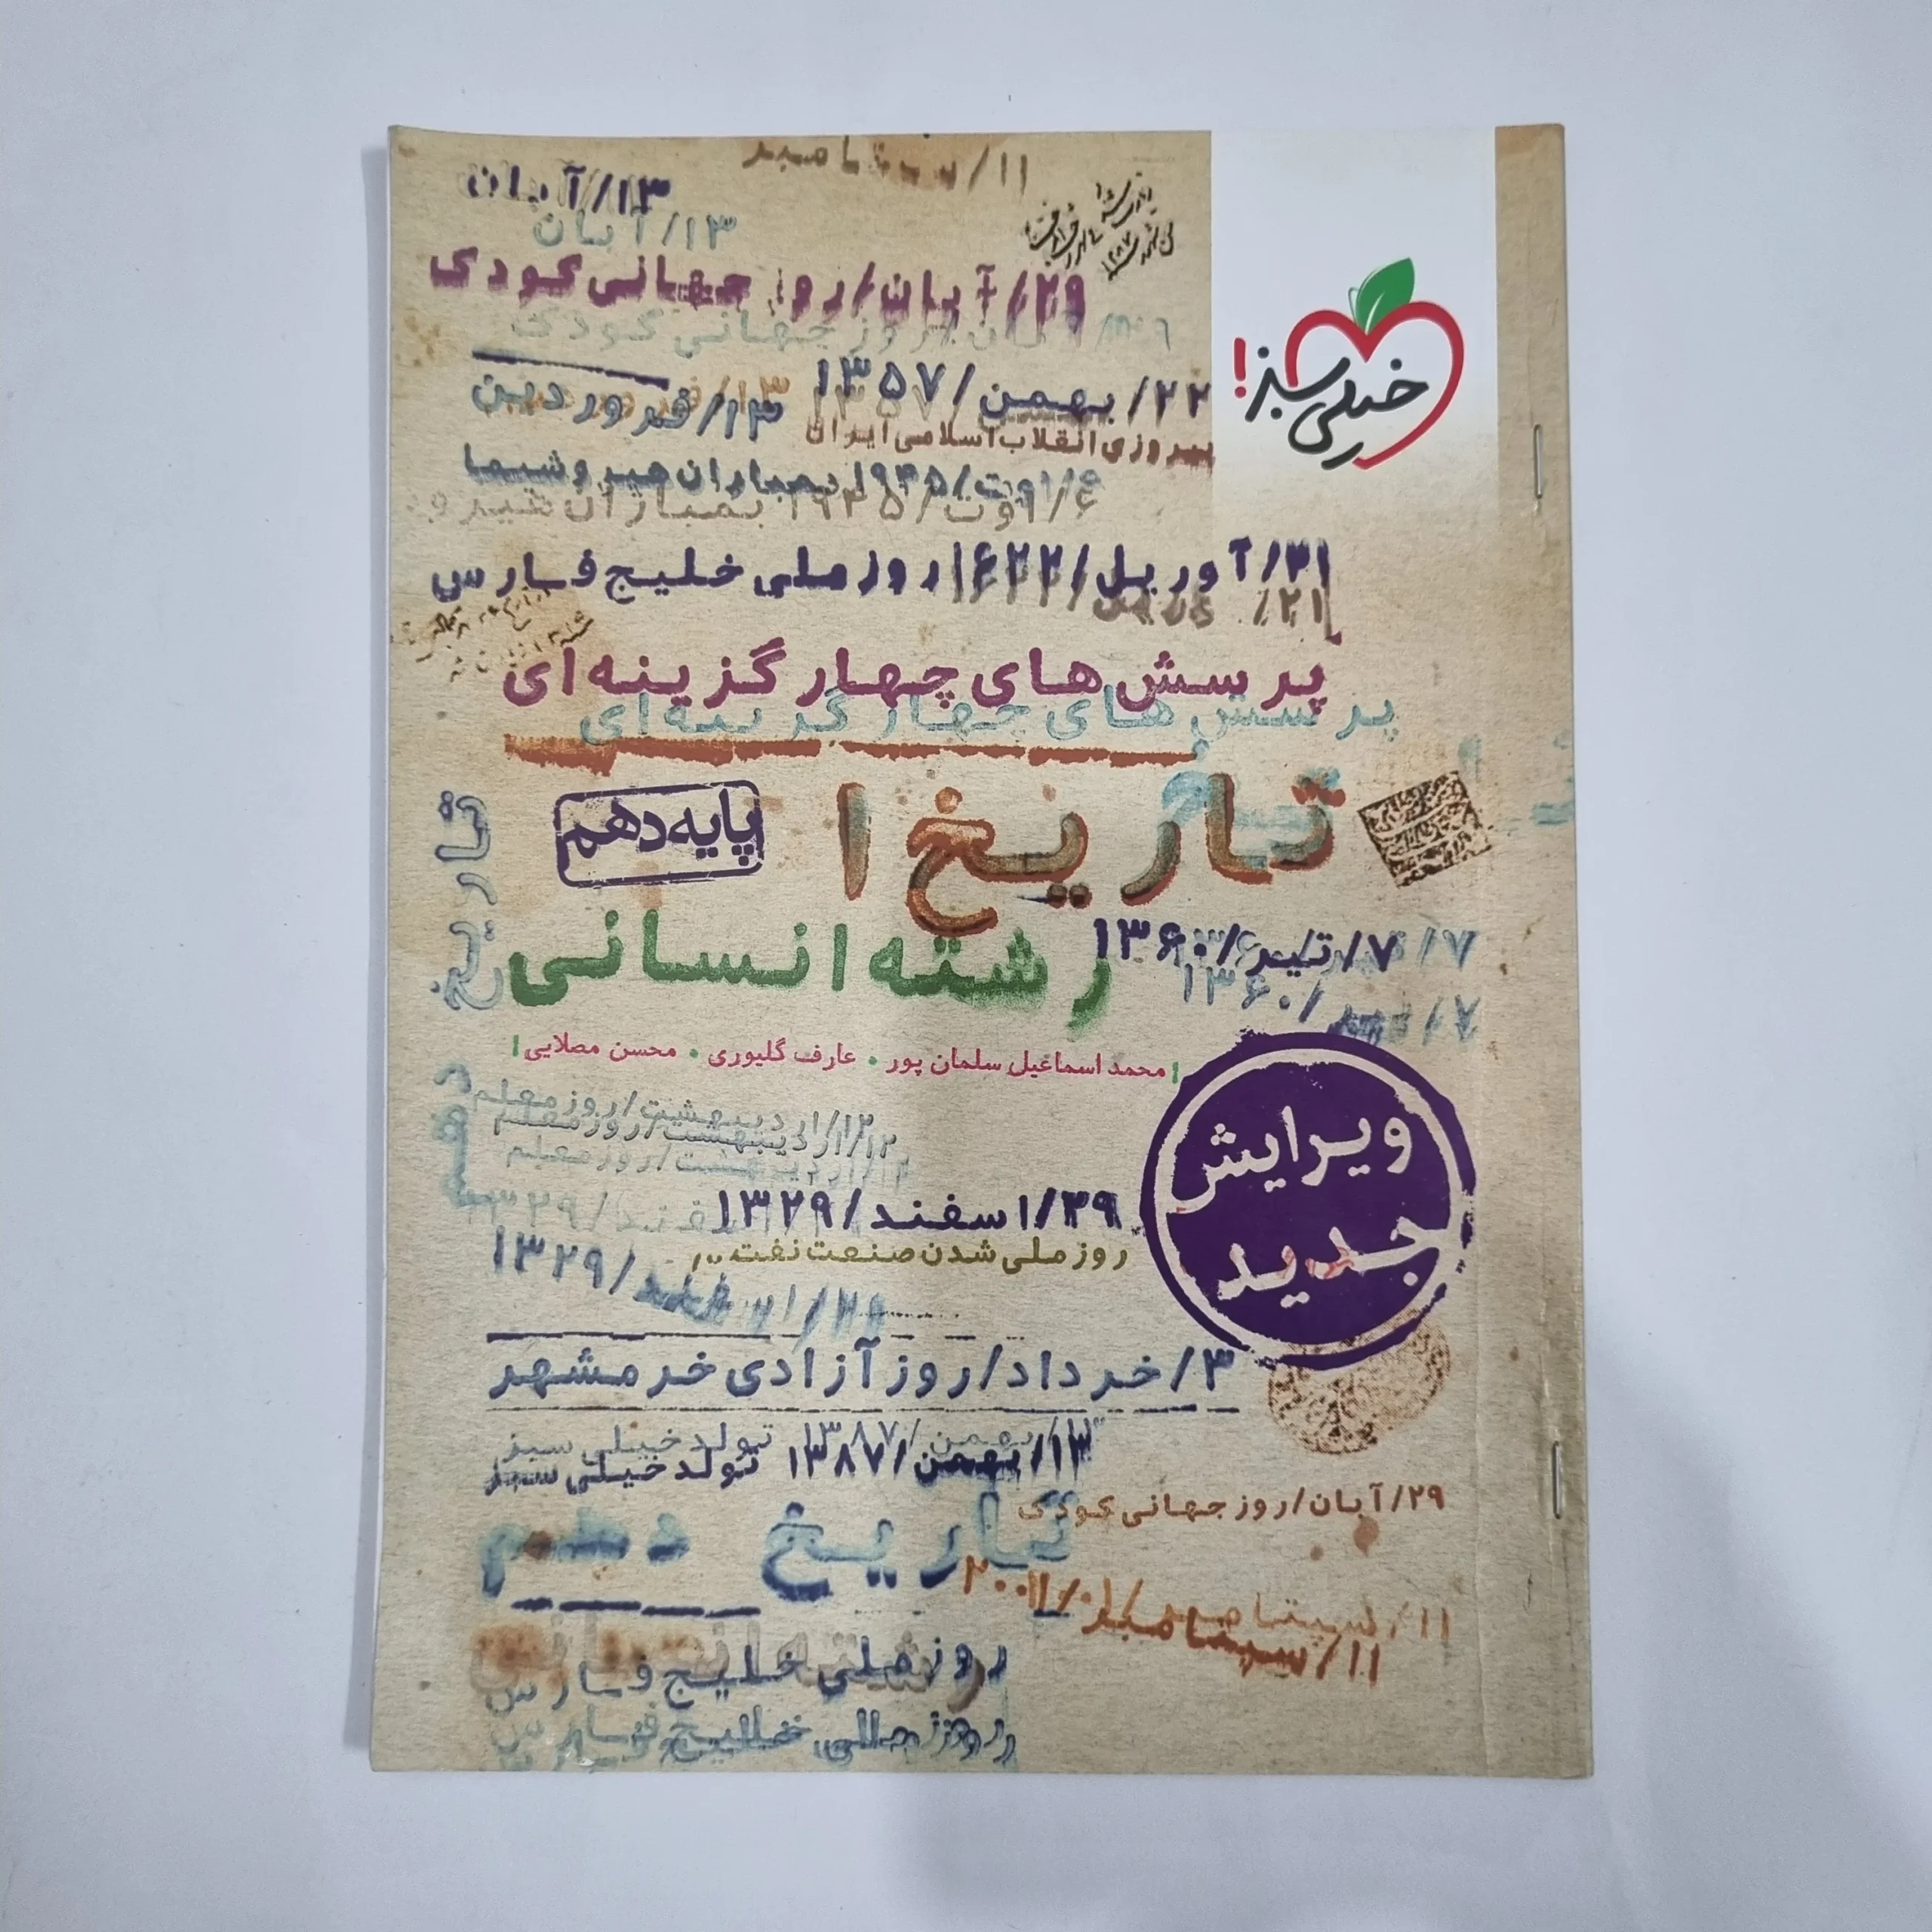 ۱۱/سپتامبر
۱۳/آبان
۱۳/آبان
۲۹/آبان/روز جهانی کودک
روز جهانی کودک
خیلی سبز!
۲۲/بهمن/۱۳۵۷
۱۳/فروردین
پیروزی انقلاب اسلامی ایران
۶/اوت/۱۹۴۵ بمباران هیروشیما
۶/اوت/۱۹۴۵ بمباران هیرو
۲۱/آوریل/۱۶۲۲/روز ملی خلیج فارس
پرسش های چهار گزینه ای
پرسش های چهار گزینه ای
تاریخ ۱
پایه دهم
تاریخ
دهم
رشته انسانی
۷/تیر/۱۳۶۰
۷/تیر/۱۳۶۰
محمد اسماعیل سلمان پور • عارف گلیوری • محسن مصلایی
ویرایش
جدید
۱۲/اردیبهشت/روز معلم
۱۲/اردیبهشت/روز معلم
۱۲/اردیبهشت/روز معلم
۲۹/اسفند/۱۳۲۹
روز ملی شدن صنعت نفت
۲۹/اسفند/۱۳۲۹
۳/خرداد/روز آزادی خرمشهر
بهمن/۱۳۸۷ تولد خیلی سبز
۱۳/بهمن/۱۳۸۷ تولد خیلی سبز
۲۹/آبان/روز جهانی کودک
تاریخ دهم
۱۱/سپتامبر/۲۰۰۱
۱۱/سپتامبر
روز ملی خلیج فارس
روز ملی خلیج فارس